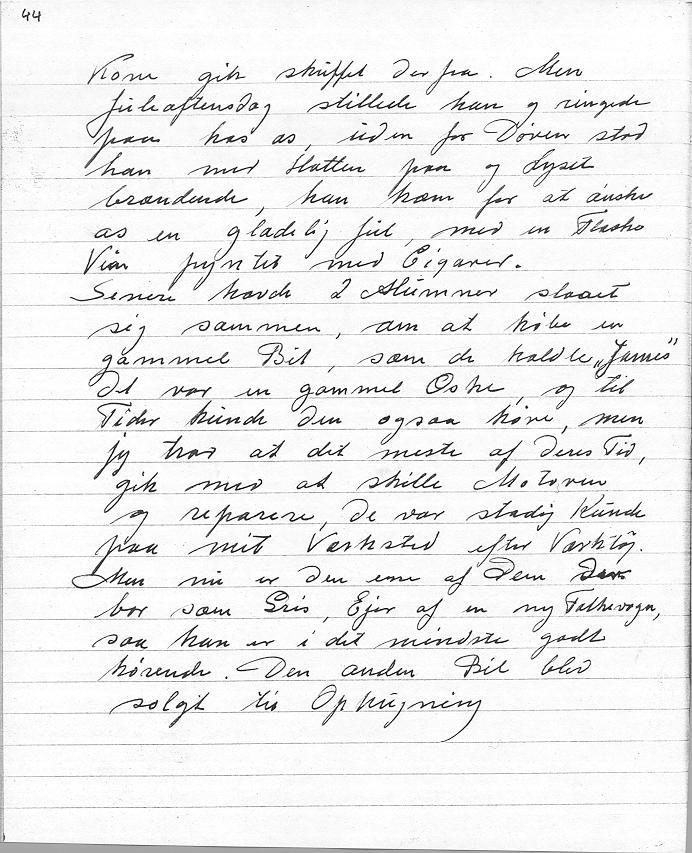 44
Kone gik skuffet derfra. Men
juleaftensdag stillede han og ringede
paa hos os, uden for Døren stod
han med Hatten paa og Lyset
brændende, han kom for at ønske
os en glædelig jul, med en Flaske
Vin pyntet med Cigarer.
Senere havde 2 Alumner slaaet
sig sammen, om at købe en
gammel Bil, som de kaldte „James"
det var en gammel Oske, og til
Tider kunde den ogsaa køre, men
jeg tror at det meste af deres Tid,
gik med at skille Motoren
og reparere, de var stadig Kunde
paa mit Værksted efter Værktøj.
Men nu er den ene af Dem
bor som Gris, Ejer af en ny Folkevogn,
saa han er i det mindste godt
kørende. Den anden Bil blev
solgt til Ophugning